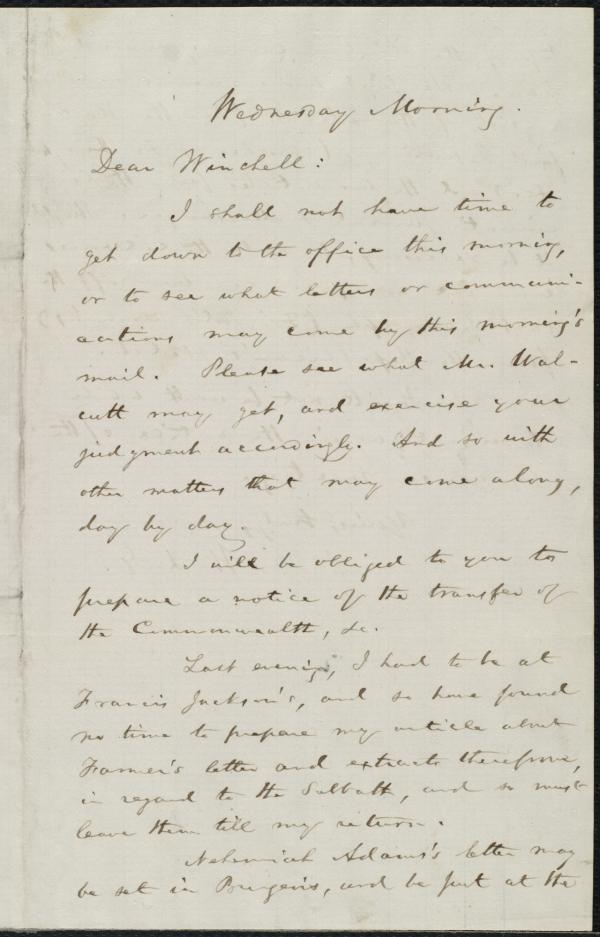 Wednesday Morning.
Dear Winchell:
I shall not have time to
get down to the office this morning,
or to see what letters or communi-
cations may come by this morning's
mail. Please see what Mr. Wal-
cutt may get, and exercise your
judgment accordingly. And so with
other matters that may come along,
day by day.
I will be obliged to you to
prepare a notice of the transfer of
the Commonwealth, &c.
Last evening, I had to be at
Francis Jackson's, and so have found
no time to prepare my article about
Farmer's letter and extracts therefrom,
in regard to the Sabbath, and so must
leave them till my return.
Nehemiah Adams's letter may
be set in Burgeois, and be put at the